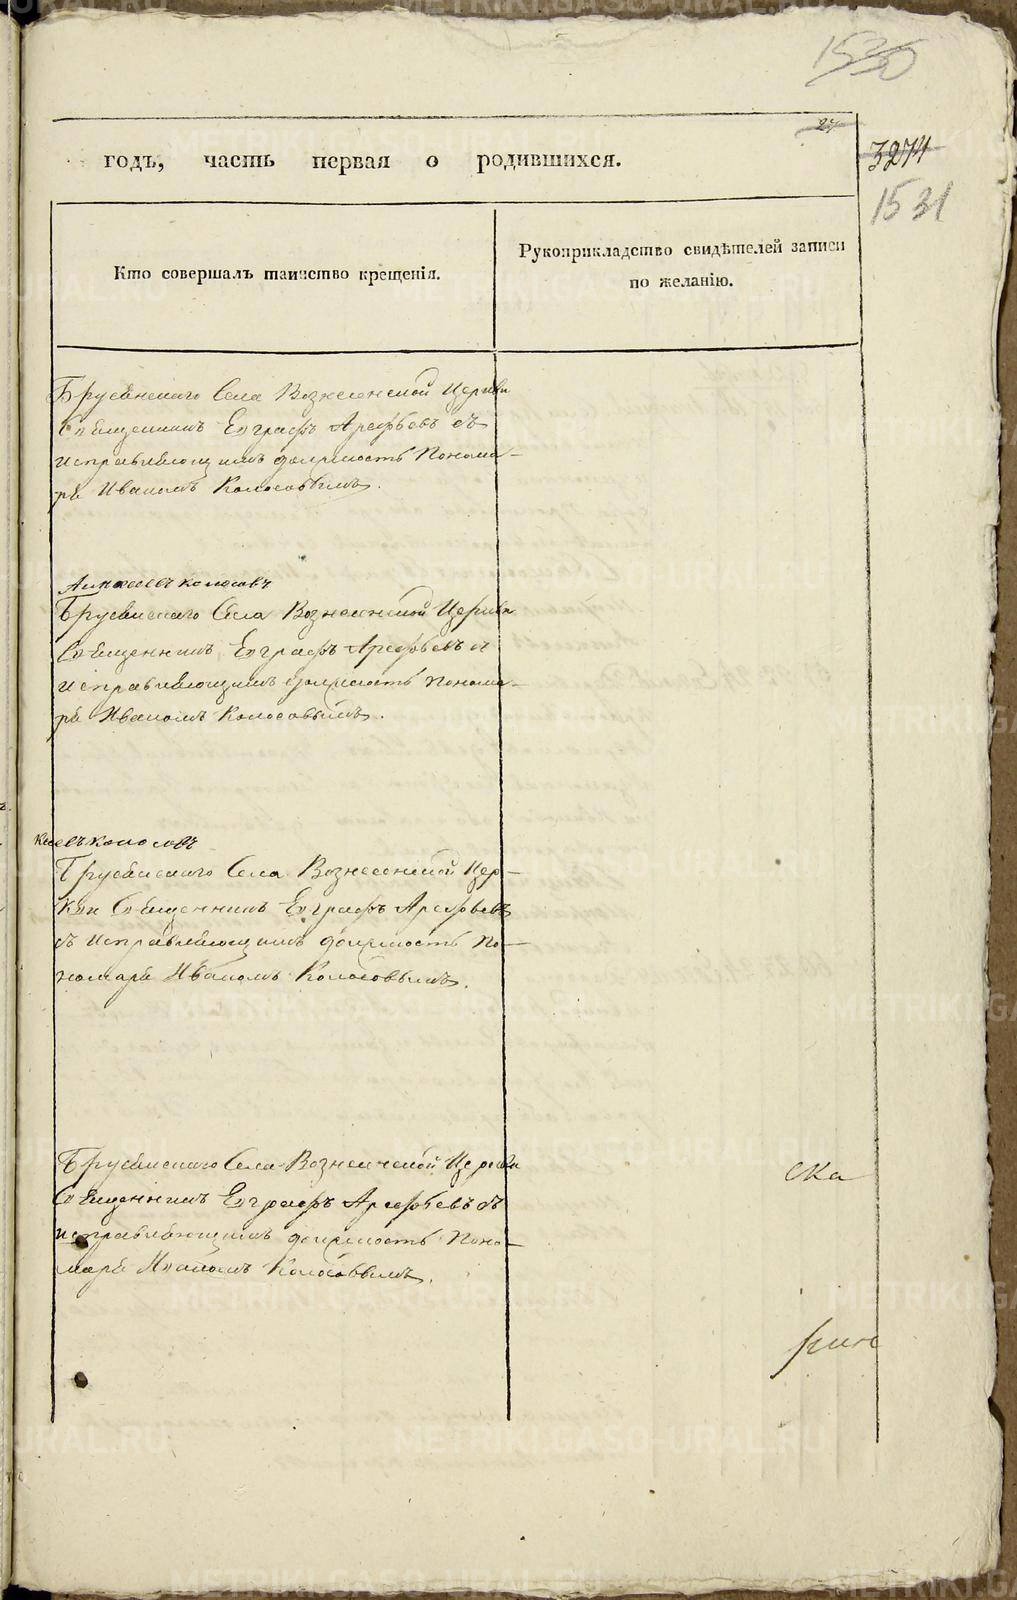 1530
27
годъ, часть первая о родившихся.
3274
1531
Кто совершалъ таинство крещенія.
Рукоприкладство свидѣтелей записи
по желанію.
Брусянскаго Села Вознесенской Церкви
Священникъ Евграфъ Арефьевъ съ
исправляющимъ должность Понома-
ря Иваномъ Колосовымъ.
Алексеевъ Колосовъ
Брусянскаго Села Вознесенской Церкви
Священникъ Евграфъ Арефьевъ съ
исправляющимъ должность Понома-
ря Иваномъ Колосовымъ.
Колосовъ
Брусянскаго Села Вознесенской Цер-
кви Священникъ Евграфъ Арефьевъ
съ исправляющимъ должность По-
номаря Иваномъ Колосовымъ.
Брусянскаго Села Вознесенской Церкви
Священникъ Евграфъ Арефьевъ съ
исправляющимъ должность Поно-
маря Иваномъ Колосовымъ.
ска
METRIKI.GASO-URAL.RU